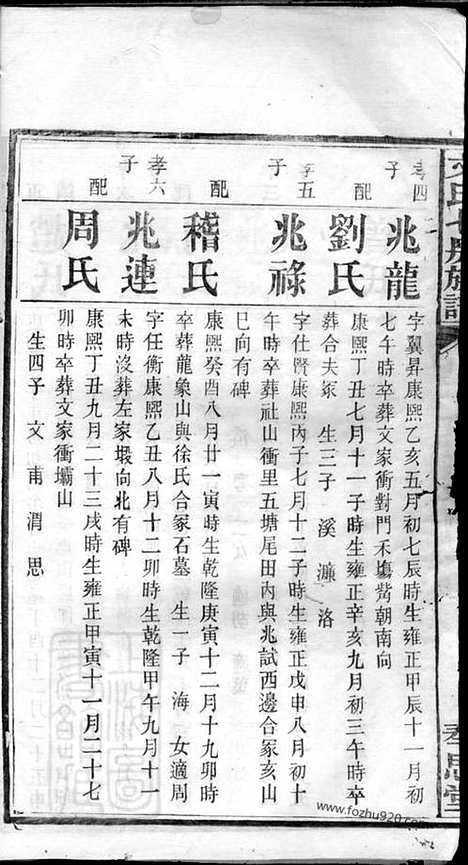 孝四
子
兆龍
字翼昇康熙乙亥五月初七辰時生雍正甲辰十一月初
七午時卒葬文家衝對門禾塲觜朝南向
配
劉氏
康熙丁丑七月十一子時生雍正辛亥九月初三午時卒
葬合夫冢 生三子 溪 濂 洛
孝五
子
兆祿
字仕賢康熙丙子七月十二子時生雍正戊申八月初十
午時卒葬社山衝里五塘尾田內與兆試西邊合冢亥山
巳向有碑
配
稽氏
康熙癸酉八月廿一寅時生乾隆庚寅十二月十九卯時
卒葬龍象山與徐氏合冢石墓 生一子 海 女適周
孝六
子
兆連
字任衡康熙乙丑八月十二卯時生乾隆甲午九月十一
未時沒葬左家塅向北有碑
配
周氏
康熙丁丑九月二十三戌時生雍正甲寅十一月二十七
卯時卒葬文家衝壩山
生四子 文 甫 渭 思
www.fozhu920.com